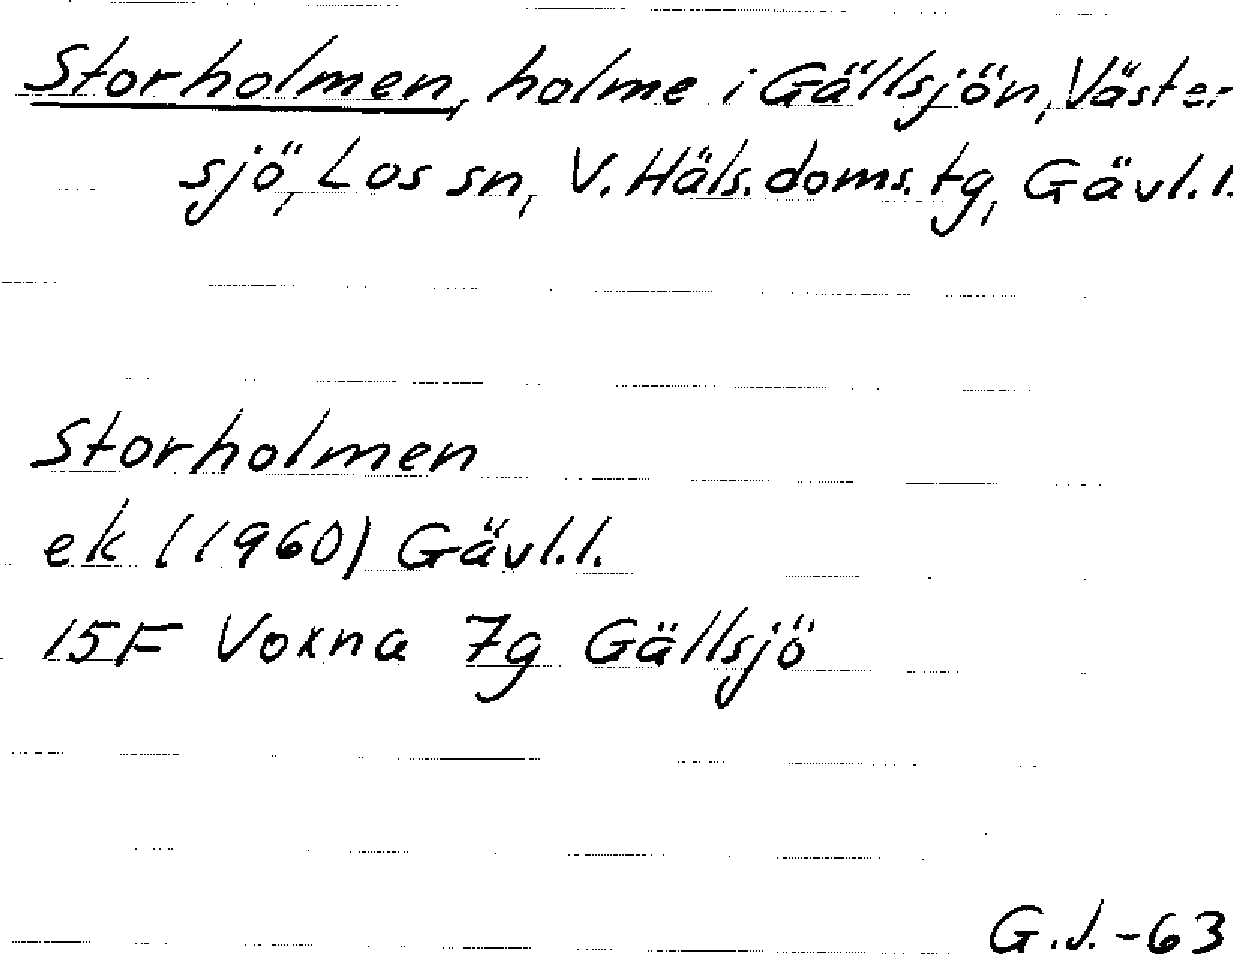 Storholmen, holme i Gällsjön, Väster
sjö, Los sn, V. Häls. doms. tg, Gävl. l.
Storholmen
ek (1960) Gävl. l.
15F Voxna 7g Gällsjö
G.J. -63